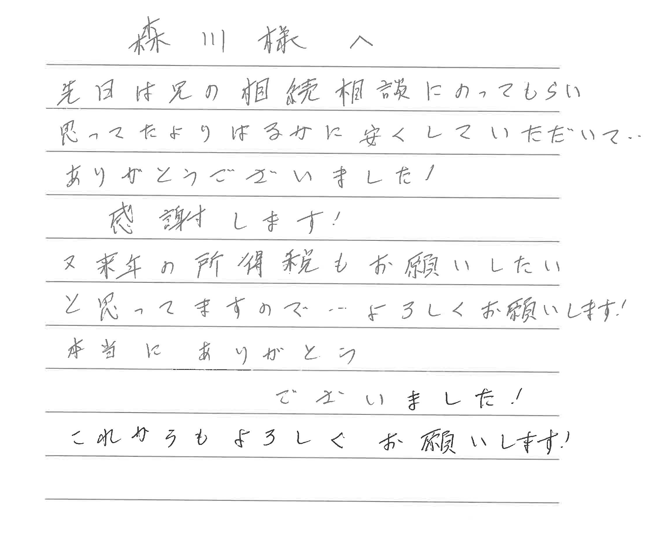 森川様へ
先日は兄の相続相談にのってもらい
思ってたよりはるかに安くしていただいて‥
ありがとうございました!
感謝します!
又来年の所得税もお願いしたい
と思ってますので…よろしくお願いします!
本当にありがとう
ございました!
これからもよろしくお願いします!